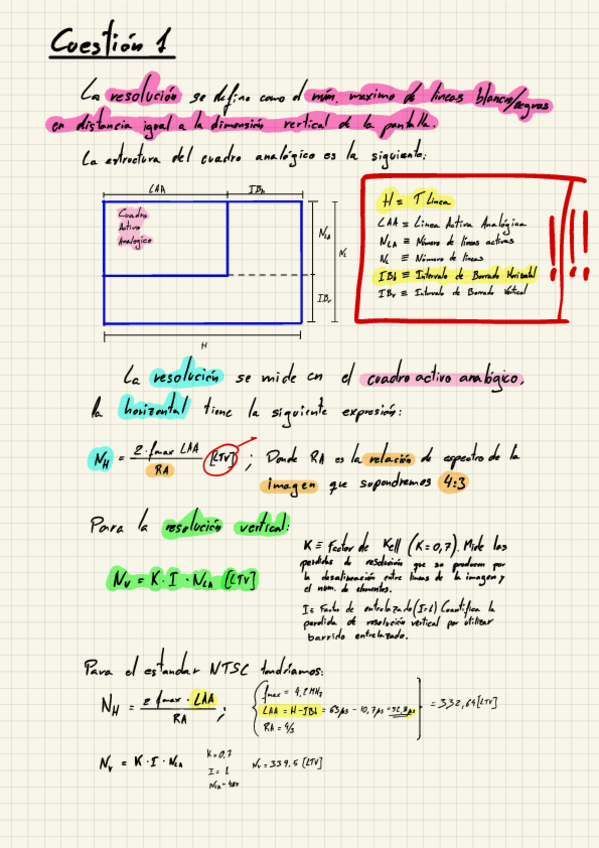 Cuestión 1
La resolución se define como el núm. maximo de lineas blancas/negras
en distancia igual a la dimensión vertical de la pantalla.
La estructura del cuadro analógico es la siguiente:
LAA IBh
Cuadro
Activo
Analogico
NLA
NL
IBv
H
H ≡ T Linea
LAA ≡ Linea Activa Analógica
NLA ≡ Número de lineas activas
NL ≡ Número de lineas
IBh ≡ Intervalo de Borrado Horizontal
IBv ≡ Intervalo de Borrado Vertical
!!
La resolución se mide en el cuadro activo analógico,
la horizontal tiene la siguiente expresión:
NH = 2·fmax LAA / RA [LTV] ; Donde RA es la relación de aspectro de la
imagen que supondremos 4:3
Para la resolución vertical:
NV = K·I·NLA [LTV]
K ≡ Factor de Kell (K=0,7). Mide las
perdidas de resolución que se producen por
la desalineación entre lineas de la imagen y
el num. de elementos.
I ≡ Factor de entrelazado (I≤1) Cuantifica la
perdida de resolución vertical por utilizar
barrido entrelazado.
Para el estandar NTSC tendriamos:
NH = 2 fmax · LAA / RA ;
fmax = 4,2 MHz
LAA = H - IBh = 63 µs - 10,7 µs = µs
RA = 4/3
= 332,64 [LTV]
Nv = K·I·NLA
K=0,7
I = 1
NLA =
Nv = 339,5 [LTV]